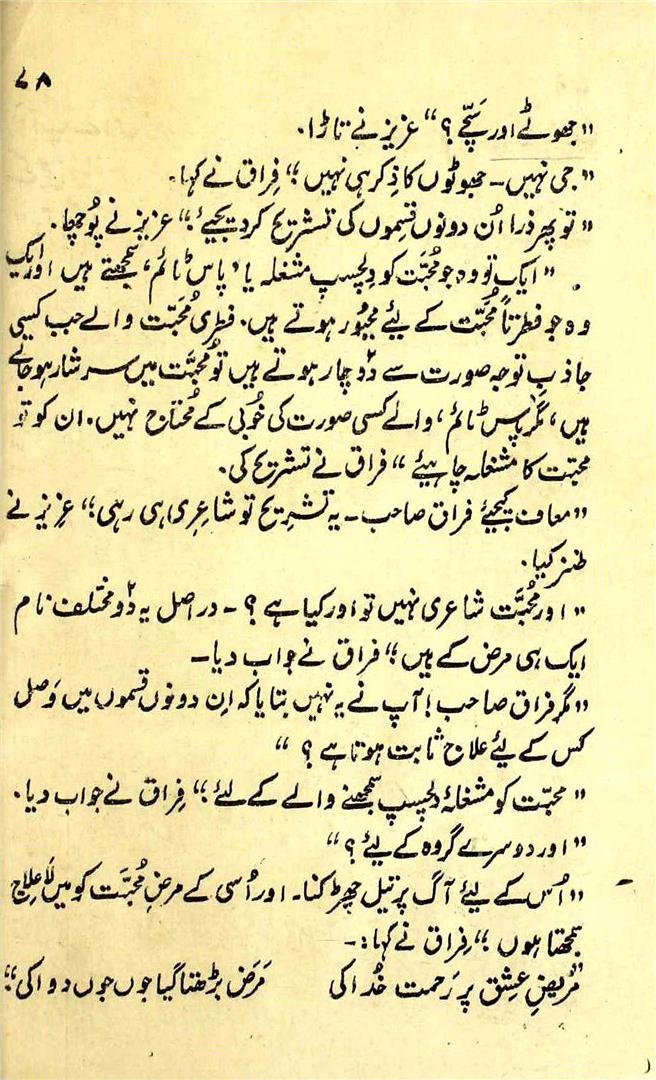 ۷۸
"جھوٹے اور سَچّے؟" عزیز نے تاڑا۔
"جی نہیں۔ جھوٹوں کا ذِکر ہی نہیں؛" فِراق نے کہا۔
"تو پھر ذرا اُن دونوں قسِموں کی تشریح کر دیجیے؛" عزیز نے پُوچھا۔
"ایک تو وہ جو مُحبّت کو دِلچسپ مشغلہ یا 'پاس ٹائم' سمجھتے ہیں اور ایک
وہ جو فطرتاً مُحبّت کے لیٔے مجبُور ہوتے ہیں۔ فطری مُحبّت والے جب کسی
جاذبِ توجہ صورت سے دوچار ہوتے ہیں تو مُحبَّت میں سرشار ہو جاتے
ہیں، مگر 'پاس ٹائم' والے کسی صورت کی خُوبی کے مُحتاج نہیں۔ ان کو تو
محبت کا مشغلہ چاہیٔے" فراق نے تشریح کی۔
"معاف کیجیٔے فراق صاحب۔ یہ تشریح تو شاعِری ہی رہی؛" عزیز نے
طنز کیا۔
"اور مُحبّت شاعری نہیں تو اور کیا ہے؟۔ در اصل یہ دو مختلف نام
ایک ہی مرض کے ہیں؛" فراق نے جواب دیا۔
"مگر فراق صاحب! آپ نے یہ نہیں بتایا کہ اِن دونوں قسموں میں وَصل
کس کے لیٔے علاج ثابت ہوتا ہے؟"
"محبّت کو مشغلۂ دلچسپ سمجھنے والے کے لیٔے؛" فِراق نے جواب دیا۔
"اور دوسرے گروہ کے لیٔے؟"
"اُس کے لیٔے آگ پر تیل چھڑکنا۔ اور اُسی کے مرضِ مُحبَّت کو میں لاَعِلاج
سمجھتا ہوں؛" فِراق نے کہا:۔
"مریضِ عِشق پر رَحمت خُدا کی مَرَض بڑھتا گیا جوں جوں دوا کی؛"